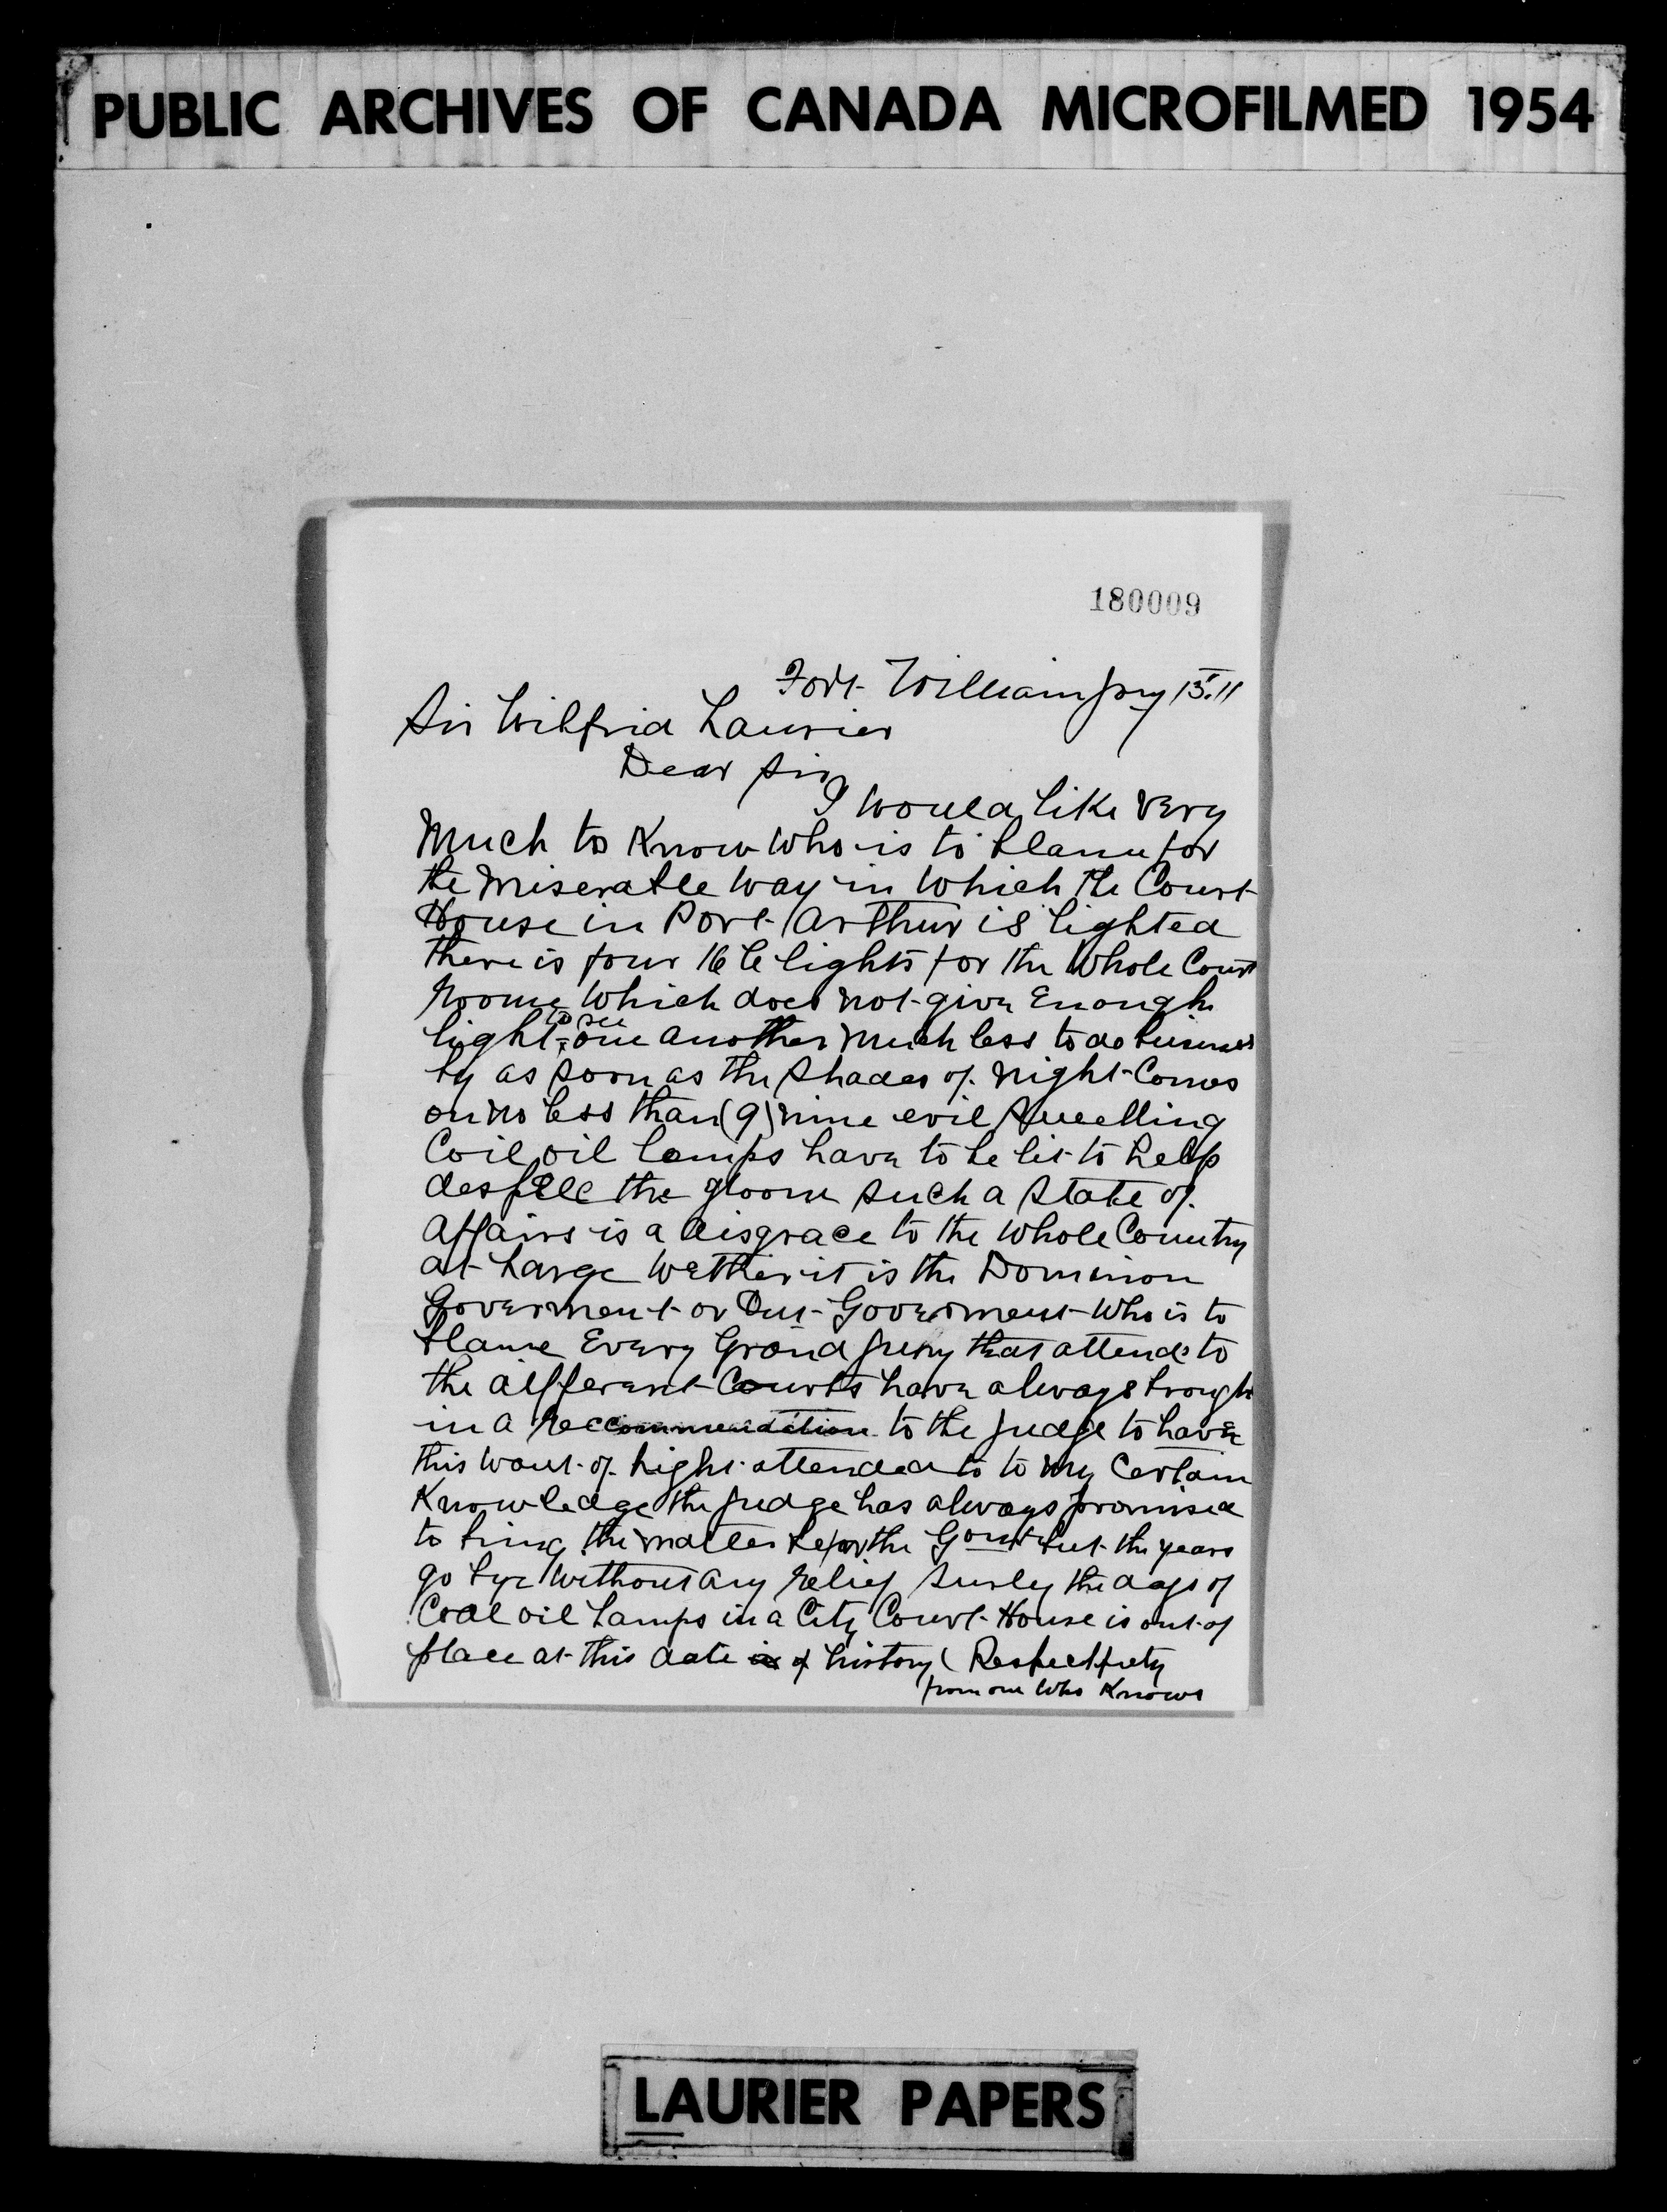 PUBLIC ARCHIVES OF CANADA MICROFILMED 1954
180009
Fort William Jny 15.11
Sir Wilfrid Laurier
Dear Sir
I would like very
Much to Know who is to blame for
the Miserable way in Which the Court
House in Port Arthur is lighted
there is four 16 C lights for the Whole Court
Roome Which does not give Enough
to see
light one another much less to do business
by as soon as the Shades of night Comes
on no less than (9) nine evil smelling
Coil oil lamps have to be lit to help
despell the gloom such a state of
affairs is a disgrace to the Whole Country
at Large wether it is the Dominion
Goverment or Ont Goverment Who is to
blame Every Grand Jury that attends to
the different Courts have always brough
in a Reccommendation to the Judge to have
this want of light attended to to my Certain
Knowledge the Judge has always promised
to bring the matter befor the Gomt but the years
go bye without any relief surly the days of
Coal oil Lamps in a City Court House is out of
place at this date of history ( Respectfuly
from one Who Knows
LAURIER PAPERS